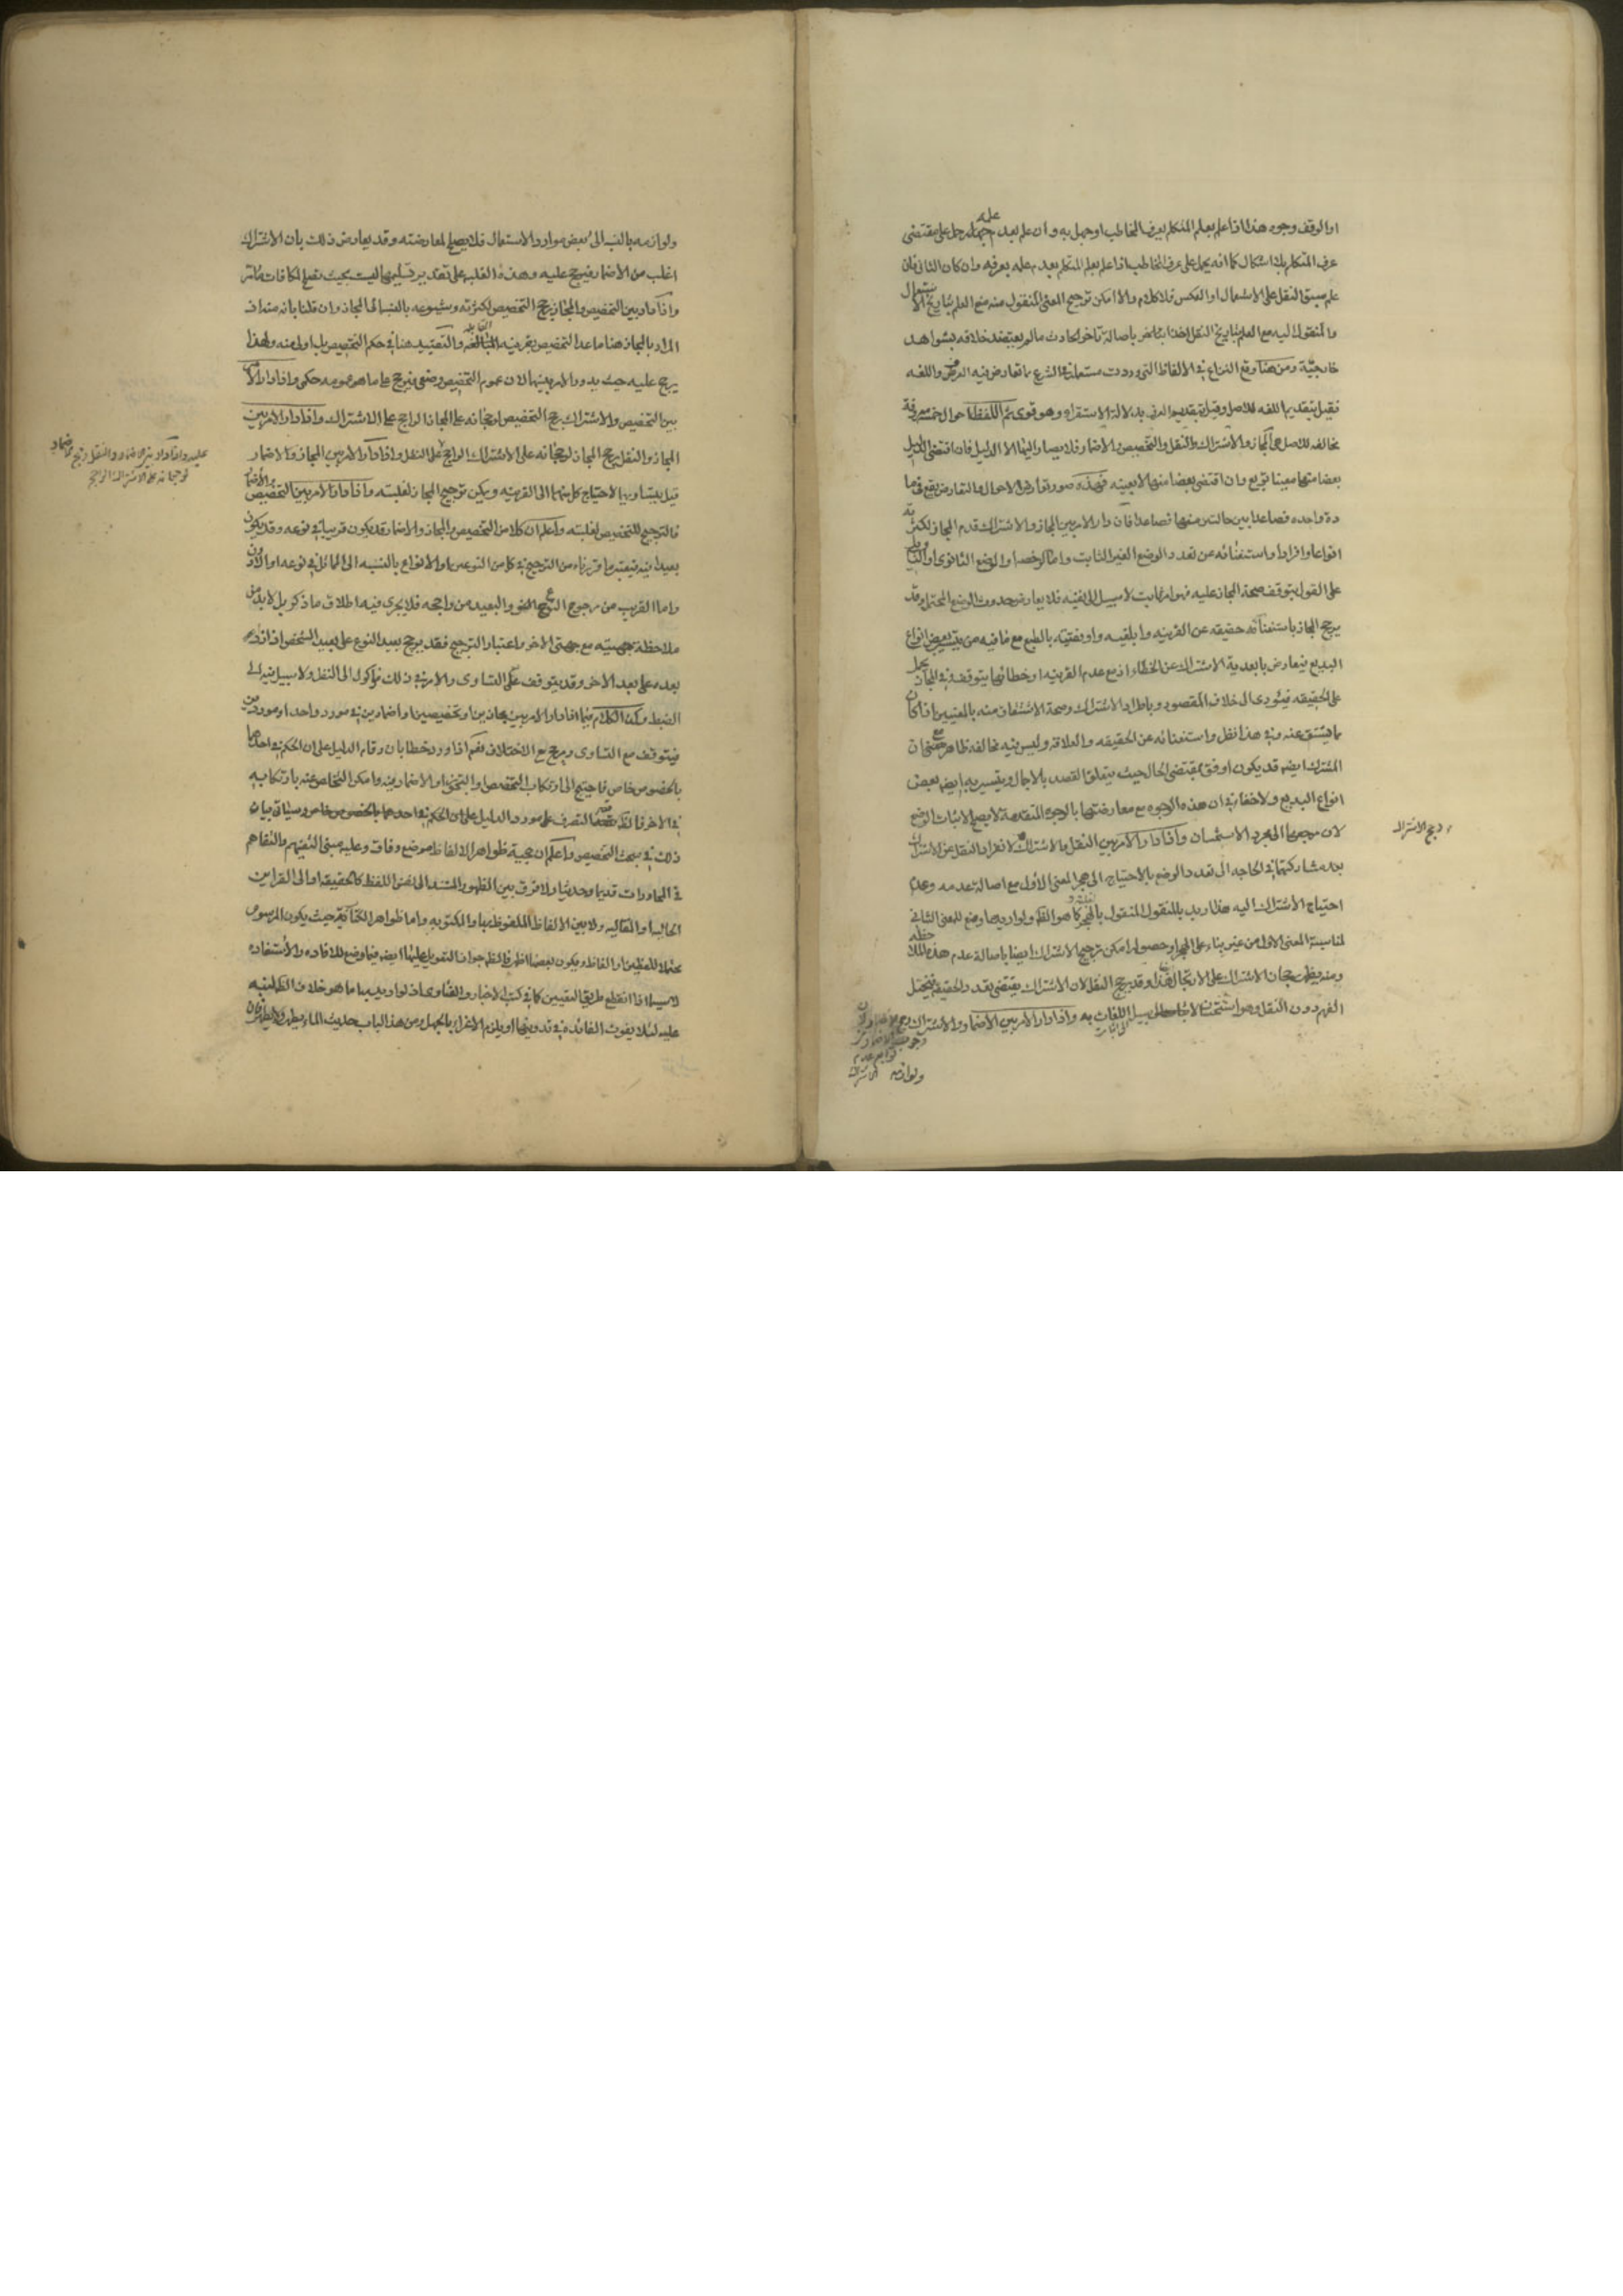 او الوقف وجوه هذا اذا علم بعلم المتكلم بعرف المخاطب او جهل به وان علم بعدم علمه حمل على مقتضى
عرف المتكلم بلا اشكال كما انه يحمل على عرف المخاطب اذا علم بعلم المتكلم بعدم علمه بعرفه وان كان الثاني فان
علم سبق النقل على الاستعمال او العكس فلا كلام والا امكن ترجيح المعنى المنقول منه مع العلم بتاريخ الاستعمال
والمنقول اليه مع العلم بتاريخ النقل اخذا باصالة تاخر الحادث ما لم يعتضد خلافه بشواهد
خارجية ومن هنا وقع النزاع في الالفاظ التي وردت مستعملة في الشرع ما تعارض فيه العرف واللغه
فقيل بتقديم اللغه للاصل وقيل بتقديم العرف بدلالة الاستقراء وهو قوى ثم اللفظ احوال خمسه معروفة
مخالفه للاصل هي المجاز والاشتراك والنقل والتخصيص والاضمار فلا يصار اليها الا الدليل فان اقتضى الدليل
بعضا منها معينا تعين وان اقتضى بعضا منها لا بعينه فهذه صورة تعارض الاحوال والتعارض يقع في ما
دة واحده فصاعدا بين حالتين منها فصاعدا فان دار الامر بين المجاز والاشتراك قدم المجاز لكثرته
انواعا وافرادا واستغنائه عن تعدد الوضع الغير الثابت واما الرخصه او الوضع الثانوى
على القول بتوقف صحة المجاز عليه فهو امر ثابت لا سبيل الى نفيه فلا يعارض حدوث الوضع المحتمل وقد
يرجح المجاز باستغنائه حقيقه عن القرينه وابلغيه واوفقيته بالطبع مع ما فيه من تيسير بعض انواع
البديع فيعارض بابعدية الاشتراك عن الخطاء اذ مع عدم القرينه او خطائها يتوقف وفي المجاز يحمل
على الحقيقه فيؤدى الى خلاف المقصود وباطراد الاشتراك وصحة الاشتقاق منه بالمعنيين اذا كان
مما يشتق عنه وفي هذا نظر واستغنائه عن الحقيقه والعلاقة وليس فيه مخالفه ظاهر مع ان
المشترك ايضه قد يكون اوفق بمقتضى الحال حيث يتعلق القصد بالاجمال ويتيسر به ايضه بعض
انواع البديع ولا خفاء في ان هذه الوجوه مع معارضتها بالوجوه المتقدمة لا يصلح لاثبات الوضع
لان مرجعها الى مجرد الاستحسان واذا دار الامر بين النقل والاشتراك لانفراد النقل عن الاشتراك
رجح الاشتراك
بعد مشاركتهما في الحاجه الى تعدد الوضع بالاحتياج الى هجر المعنى الاول مع اصالة عدمه وعدم
احتياج الاشتراك اليه هذا ان اريد بالمنقول المنقول بالهجر كما هو الظ ولو اريد ما وضع للمعنى الثاني
لمناسبة المعنى الاول من غير بناء على الهجر او حصوله امكن ترجيح الاشتراك ايضا باصالة عدم هذه الملاحظه
ومنه يظهر رجحان الاشتراك على الارتجال ايضا وقد يرجح النقل لان الاشتراك يقتضى تعدد الحقيقه فيختل
الفهم دون النقل وهو استحسان لا سبيل الى اثبات اللغات به واذا دار الامر بين الاضمار والاشتراك رجح الاضمار لان
ولوازمه
ولوازمه بالنسبه الى بعض موارد الاستعمال فلا يصلح لمعارضته وقد يعارض ذلك بان الاشتراك
اغلب من الاضمار فيرجح عليه وهذه الغلبه على تقدير تسليمها ليست بحيث تصلح لمكافات ما مر
واذا دار بين التخصيص والمجاز يرجح التخصيص لكثرته وشيوعه بالنسبه الى المجاز وان قلنا بانه منه اذ
المراد بالمجاز هنا ما عدا التخصيص بقرينه المقابله والتقييد هنا في حكم التخصيص بل اولى منه ولهذا
يرجح عليه حيث يدور الامر بينهما لان عموم التخصيص وضعى فيرجح على ما هو عمومه حكمى واذا دار الامر
بين التخصيص والاشتراك يرجح التخصيص لرجحانه على المجاز الراجح على الاشتراك واذا دار الامر بين
المجاز والنقل يرجح المجاز لرجحانه على الاشتراك الراجح على النقل واذا دار الامر بين المجاز والاضمار
عليه واذا دار بين الاضمار والنقل رجح الاضمار
لرجحانه على الاشتراك الراجح
قيل بتساويهما لاحتياج كل منهما الى القرينه ويمكن ترجيح المجاز لغلبته واذا دار الامر بين التخصيص والاضمار
فالترجيح للتخصيص لغلبته واعلم ان كلا من التخصيص والمجاز والاضمار قد يكون قريبا في نوعه وقد يكون
بعيدا فيه فيعتبر ما قررناه من الترجيح في كل من النوعين او الانواع بالنسبه الى المماثل في نوعه او الادون
واما القريب من مرجوح النوع والبعيد من راجحه فلا يجرى فيه اطلاق ما ذكر بل لا بد من
ملاحظة جهتيه مع جهتى الاخر واعتبار الترجيح فقد يرجح بعيد النوع على بعيد الشخص اذا زاد
بعده على بعد الاخر وقد يتوقف على التساوى والامر في ذلك موكول الى النظر ولا سبيل فيه الى
الضبط وكذا الكلام فيما اذا دار الامر بين مجازين او تخصيصين او اضمارين في مورد واحد او موردين
فيتوقف مع التساوى ويرجح مع الاختلاف نعم اذا ورد خطابان وقام الدليل على ان الحكم في احدهما
بالخصوص خاص فاحتيج الى ارتكاب التخصيص او التجوز او الاضمار فيه وامكن التخلص عنه بارتكابه
في الاخر فالظ قصر التصرف على مورد الدليل على ان الحكم في احدهما بالخصوص خاص وسياتي بيان
ذلك في مبحث التخصيص واعلم ان حجية ظواهر الالفاظ موضع وفاق وعليه مبنى التفهيم والتفاهم
في المحاورات قديما وحديثا ولا فرق بين الظهور المستند الى نفس اللفظ كالحقيقه او الى القراين
الحاليه او المقاليه ولا بين الالفاظ الملفوظ بها والمكتوبه واما ظواهر الكتابة حيث يكون المرسوم
محتملا للفظين او الفاظ ويكون بعضها اظهر فالظ جواز التعويل عليها ايضه فيما وضع للافاده والاستفاده
لا سيما اذا انقطع طريق التعيين كما في كتب الاخبار والفتاوى اذ لو اريد بها ما هو خلاف الظ لنبه
عليه لئلا يفوت الفائده في تدوينها او يلزم الاغراء بالجهل ومن هذا الباب حديث الماء يطهر ولا يطهر فان